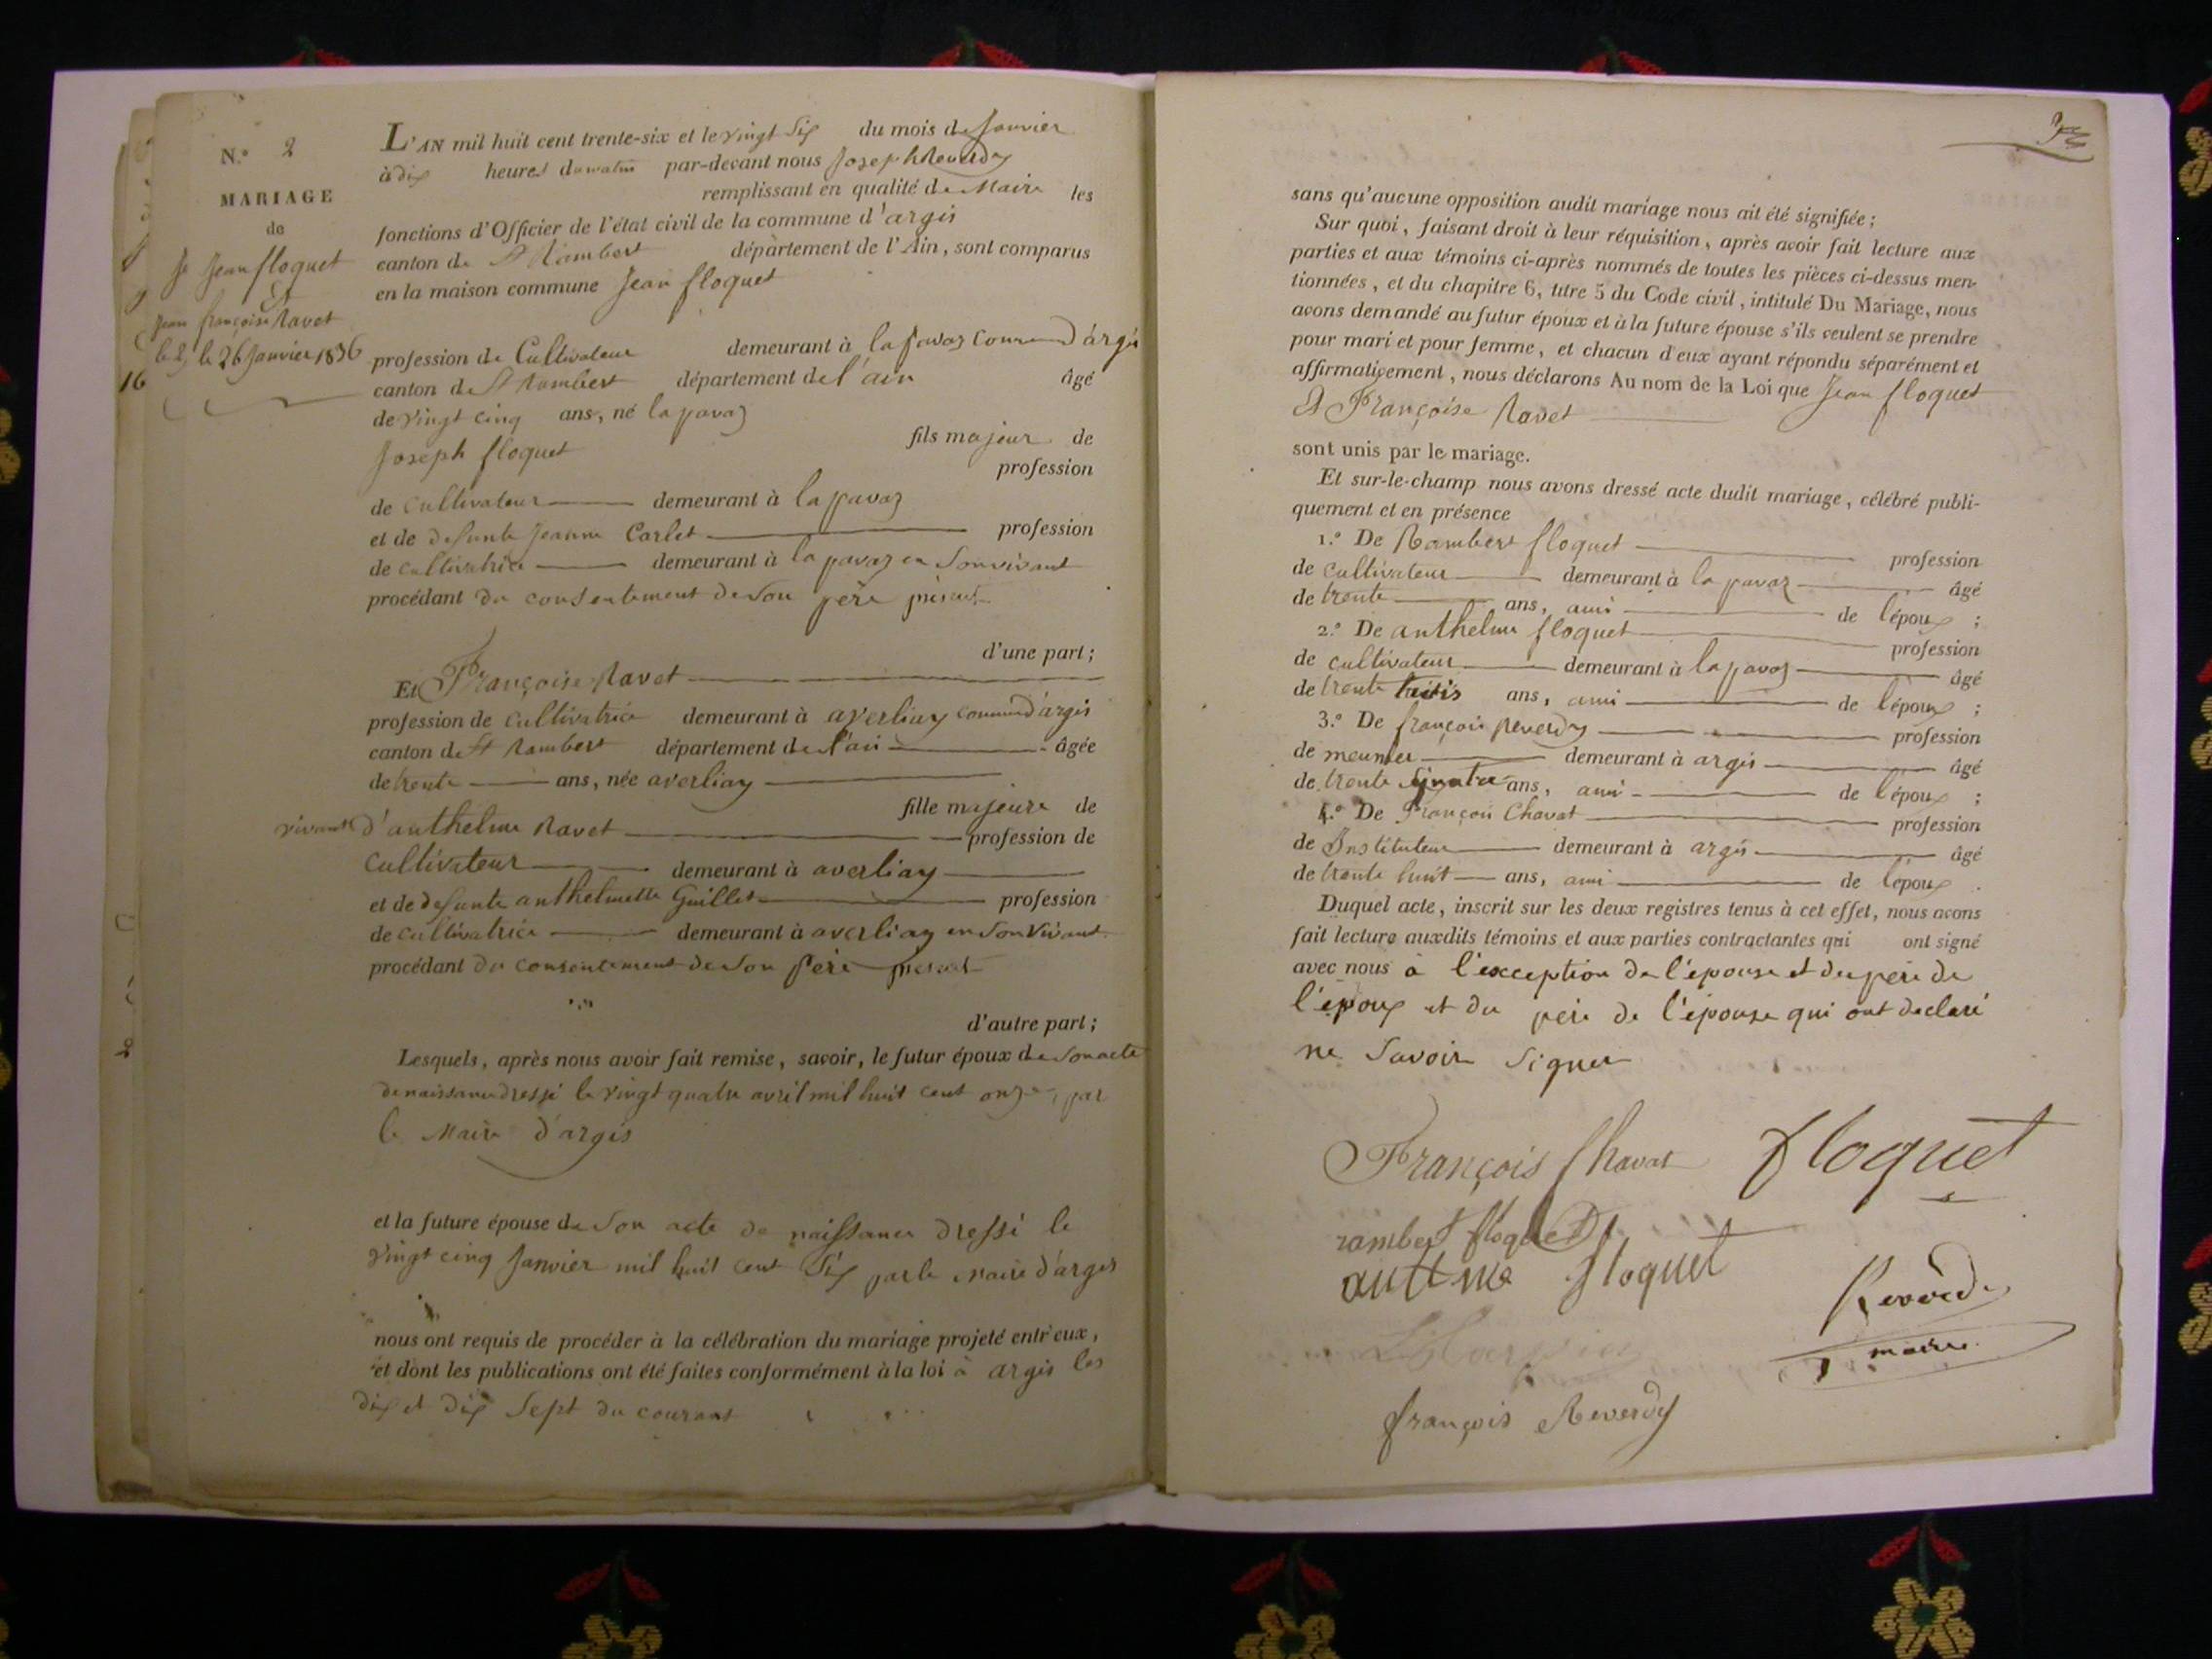 N.º 2
MARIAGE
de
Jean floquet
Et
françoise Ravet
le 26 Janvier 1836
16
L'AN mil huit cent trente-six et le vingt Six du mois de Janvier
à dix heures du matin par-devant nous Joseph Reverdy
remplissant en qualité de Maire les
fonctions d'Officier de l'état civil de la commune d'argis
canton de St Rambert département de l'Ain, sont comparus
en la maison commune Jean floquet
profession de Cultivateur demeurant à la pavaz d'argis
canton de St Rambert département de l'ain âgé
de vingt cinq ans, né la pavaz
fils majeur de
Joseph floquet profession
de cultivateur demeurant à la pavaz
et de defunte Jeanne Carlet profession
de cultivatrice demeurant à la pavaz en Son vivant
procédant du consentement de Son père présent
d'une part;
Et Françoise Ravet
profession de cultivatrice demeurant à averliaz commune d'argis
canton de St Rambert département de l'ain âgée
de trente ans, née averliaz
fille majeure de
vivant d'anthelme Ravet profession de
cultivateur demeurant à averliaz
et de defunte anthelmette Guillet profession
de cultivatrice demeurant à averliaz en Son vivant
procédant du consentement de Son père présent
d'autre part;
Lesquels, après nous avoir fait remise, savoir, le futur époux de Son acte
de naissance dressé le vingt quatre avril mil huit cent onze, par
le Maire d'argis
et la future épouse de Son acte de naissance dressé le
vingt cinq Janvier mil huit cent Six par le Maire d'argis
nous ont requis de procéder à la célébration du mariage projeté entr'eux,
et dont les publications ont été faites conformément à la loi à argis les
dix et dix Sept du courant
sans qu'aucune opposition audit mariage nous ait été signifiée;
Sur quoi, faisant droit à leur réquisition, après avoir fait lecture aux
parties et aux témoins ci-après nommés de toutes les pièces ci-dessus men-
tionnées, et du chapitre 6, titre 5 du Code civil, intitulé Du Mariage, nous
avons demandé au futur époux et à la future épouse s'ils veulent se prendre
pour mari et pour femme, et chacun d'eux ayant répondu séparément et
affirmativement, nous déclarons Au nom de la Loi que Jean floquet
Et Françoise Ravet
sont unis par le mariage.
Et sur-le-champ nous avons dressé acte dudit mariage, célébré publi-
quement et en présence
1.º De Rambert floquet profession
de cultivateur demeurant à la pavaz âgé
de trente ans, ami de l'époux ;
2.º De anthelme floquet profession
de cultivateur demeurant à la pavaz âgé
de trente trois ans, ami de l'époux ;
3.º De françois Reverdy profession
de meunier demeurant à argis âgé
de trente ans, ami de l'époux ;
4.º De François Chavat profession
de Instituteur demeurant à argis âgé
de trente huit ans, ami de l'époux .
Duquel acte, inscrit sur les deux registres tenus à cet effet, nous avons
fait lecture auxdits témoins et aux parties contractantes qui ont signé
avec nous à l'exception de l'épouse et du père de
l'époux et du père de l'épouse qui ont declaré
ne Savoir Signer
François Chavat floquet
rambert floquet
floquet
Reverdy
maire
françois Reverdy